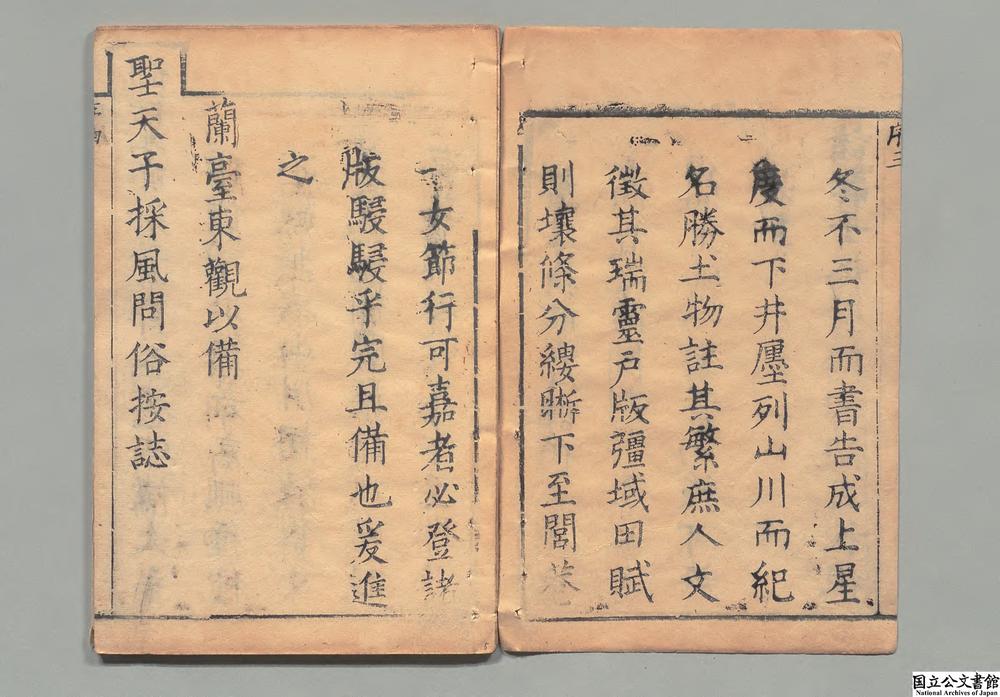 序三
冬不三月而書告成上星
度而下井廛列山川而紀
名勝土物註其繁庶人文
徵其瑞靈戶版疆域田賦
則壤條分縷晰下至閭巷
一女節行可嘉者必登諸
版駸駸乎完且備也爰進
之
蘭臺東觀以備
聖天子採風問俗按誌
国立公文書館
National Archives of Japan